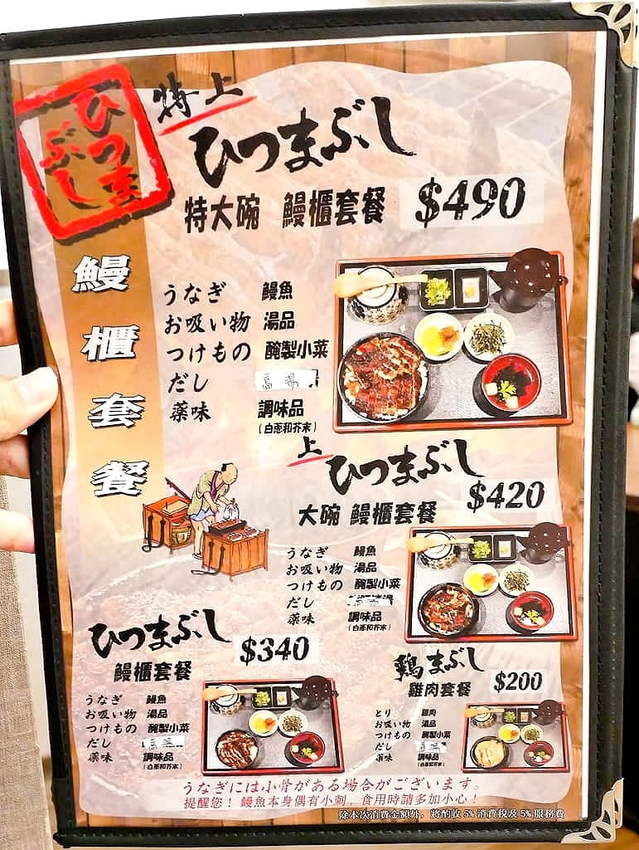 ひつま
ぶし
特上
ひつまぶし
特大碗 鰻櫃套餐 $490
鰻櫃套餐
うなぎ 鰻魚
お吸い物 湯品
つけもの 醃製小菜
だし
薬味 調味品
(白蔥和芥末)
上
ひつまぶし
大碗 鰻櫃套餐 $420
うなぎ 鰻魚
お吸い物 湯品
つけもの 醃製小菜
だし
薬味 調味品
(白蔥和芥末)
ひつまぶし
鰻櫃套餐 $340
うなぎ 鰻魚
お吸い物 湯品
つけもの 醃製小菜
だし
薬味 調味品
(白蔥和芥末)
鶏まぶし
雞肉套餐 $200
とり 雞肉
お吸い物 湯品
つけもの 醃製小菜
だし
薬味 調味品
(白蔥和芥末)
うなぎには小骨がある場合がございます。
提醒您！鰻魚本身偶有小刺，食用時請多加小心！
除本次消費金額外，將酌收 5% 消費稅及 5% 服務費